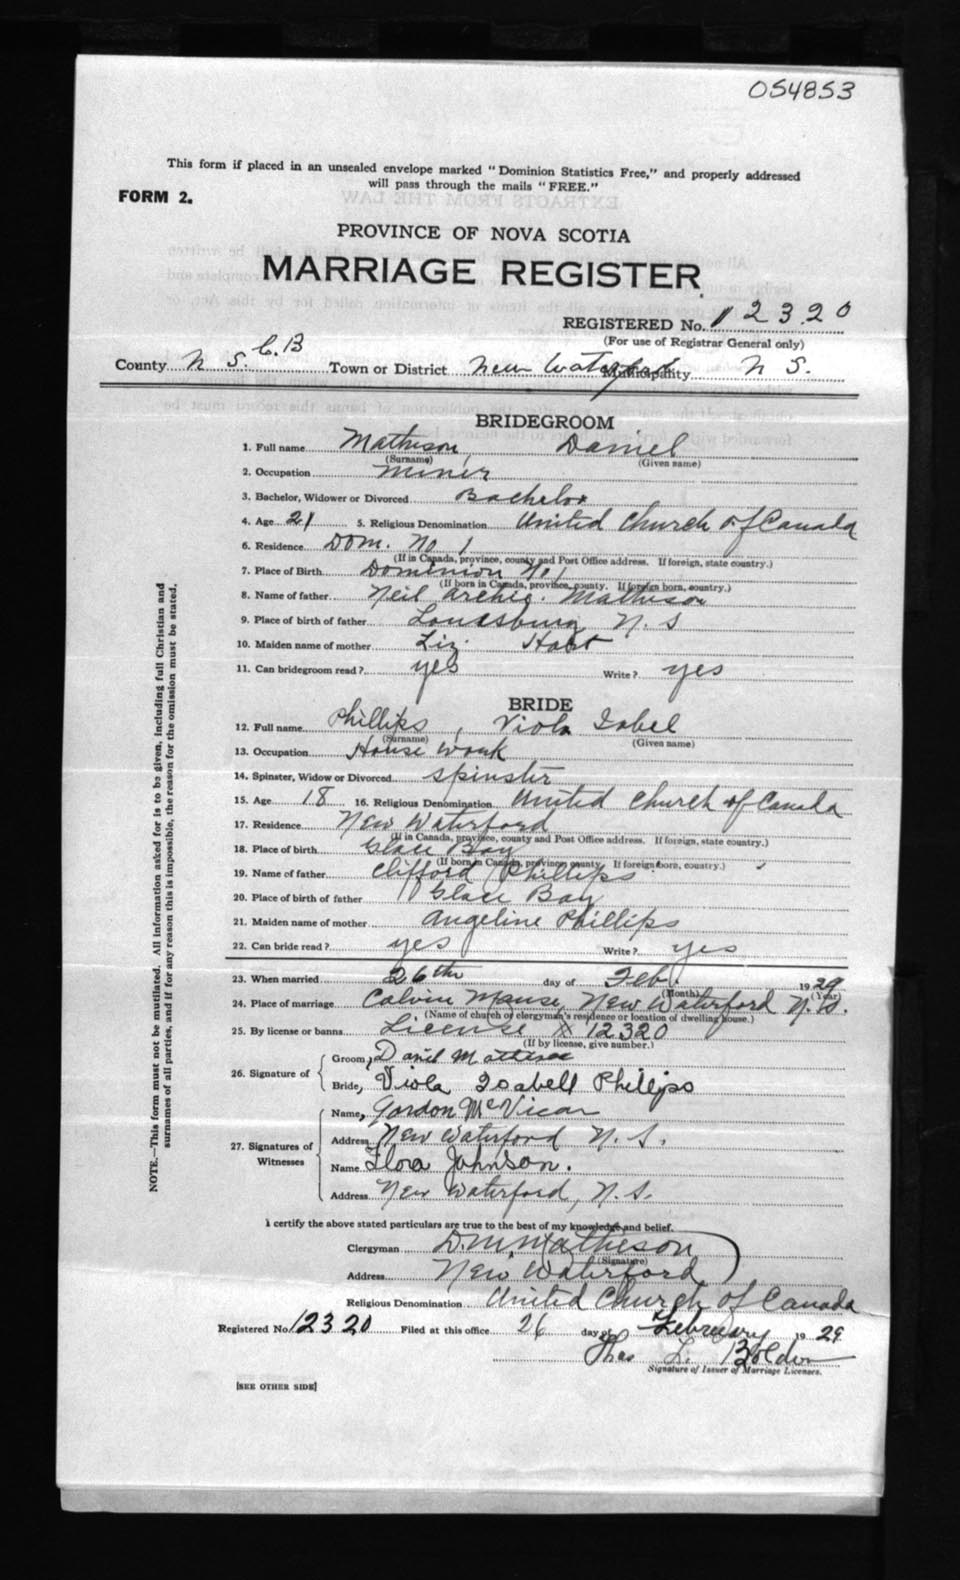 054853
This form if placed in an unsealed envelope marked "Dominion Statistics Free," and properly addressed
will pass through the mails "FREE."
FORM 2.
PROVINCE OF NOVA SCOTIA
MARRIAGE REGISTER
REGISTERED No. 12320
(For use of Registrar General only)
County N S. C.B Town or District New Waterford Municipality N S.
BRIDEGROOM
1. Full name Matheson, Daniel
(Surname) (Given name)
2. Occupation Miner
3. Bachelor, Widower or Divorced Bachelor
4. Age 21 5. Religious Denomination United Church of Canada
6. Residence Dom. No 1
(If in Canada, province, county and Post Office address. If foreign, state country.)
7. Place of Birth Dominion No 1
(If born in Canada, province, county. If foreign born, country.)
8. Name of father Neil Archie. Matheson
9. Place of birth of father Louisburg N. S
10. Maiden name of mother Liz
11. Can bridegroom read? yes Write? yes
BRIDE
12. Full name Phillips, Viola Isbel
(Surname) (Given name)
13. Occupation House work
14. Spinster, Widow or Divorced Spinster
15. Age 18 16. Religious Denomination United Church of Canada
17. Residence New Waterford
(If in Canada, province, county and Post Office address. If foreign, state country.)
18. Place of birth Glace Bay
(If born in Canada, province, county. If foreign born, country.)
19. Name of father Clifford Phillips
20. Place of birth of father Glace Bay
21. Maiden name of mother Angeline Phillips
22. Can bride read? yes Write? yes
23. When married 26th day of Feb. 1929
(Month) (Year)
24. Place of marriage Calvin Manse, New Waterford N.S.
(Name of church or clergyman's residence or location of dwelling house.)
25. By license or banns License X 12320
(If by license, give number.)
26. Signature of
Groom, Daniel Matheson
Bride, Viola Isabell Phillips
27. Signatures of Witnesses
Name, Gordon McVicar
Address New Waterford N. S.
Name Flora Johnson.
Address New Waterford, N.S.
I certify the above stated particulars are true to the best of my knowledge and belief.
Clergyman D.M. Matheson
(Signature)
Address New Waterford
Religious Denomination United Church of Canada
Registered No. 12320 Filed at this office 26 day of February 1929
Thos L.
Signature of Issuer of Marriage Licenses.
[SEE OTHER SIDE]
NOTE.—This form must not be mutilated. All information asked for is to be given, including full Christian and
surnames of all parties, and if for any reason this is impossible, the reason for the omission must be stated.